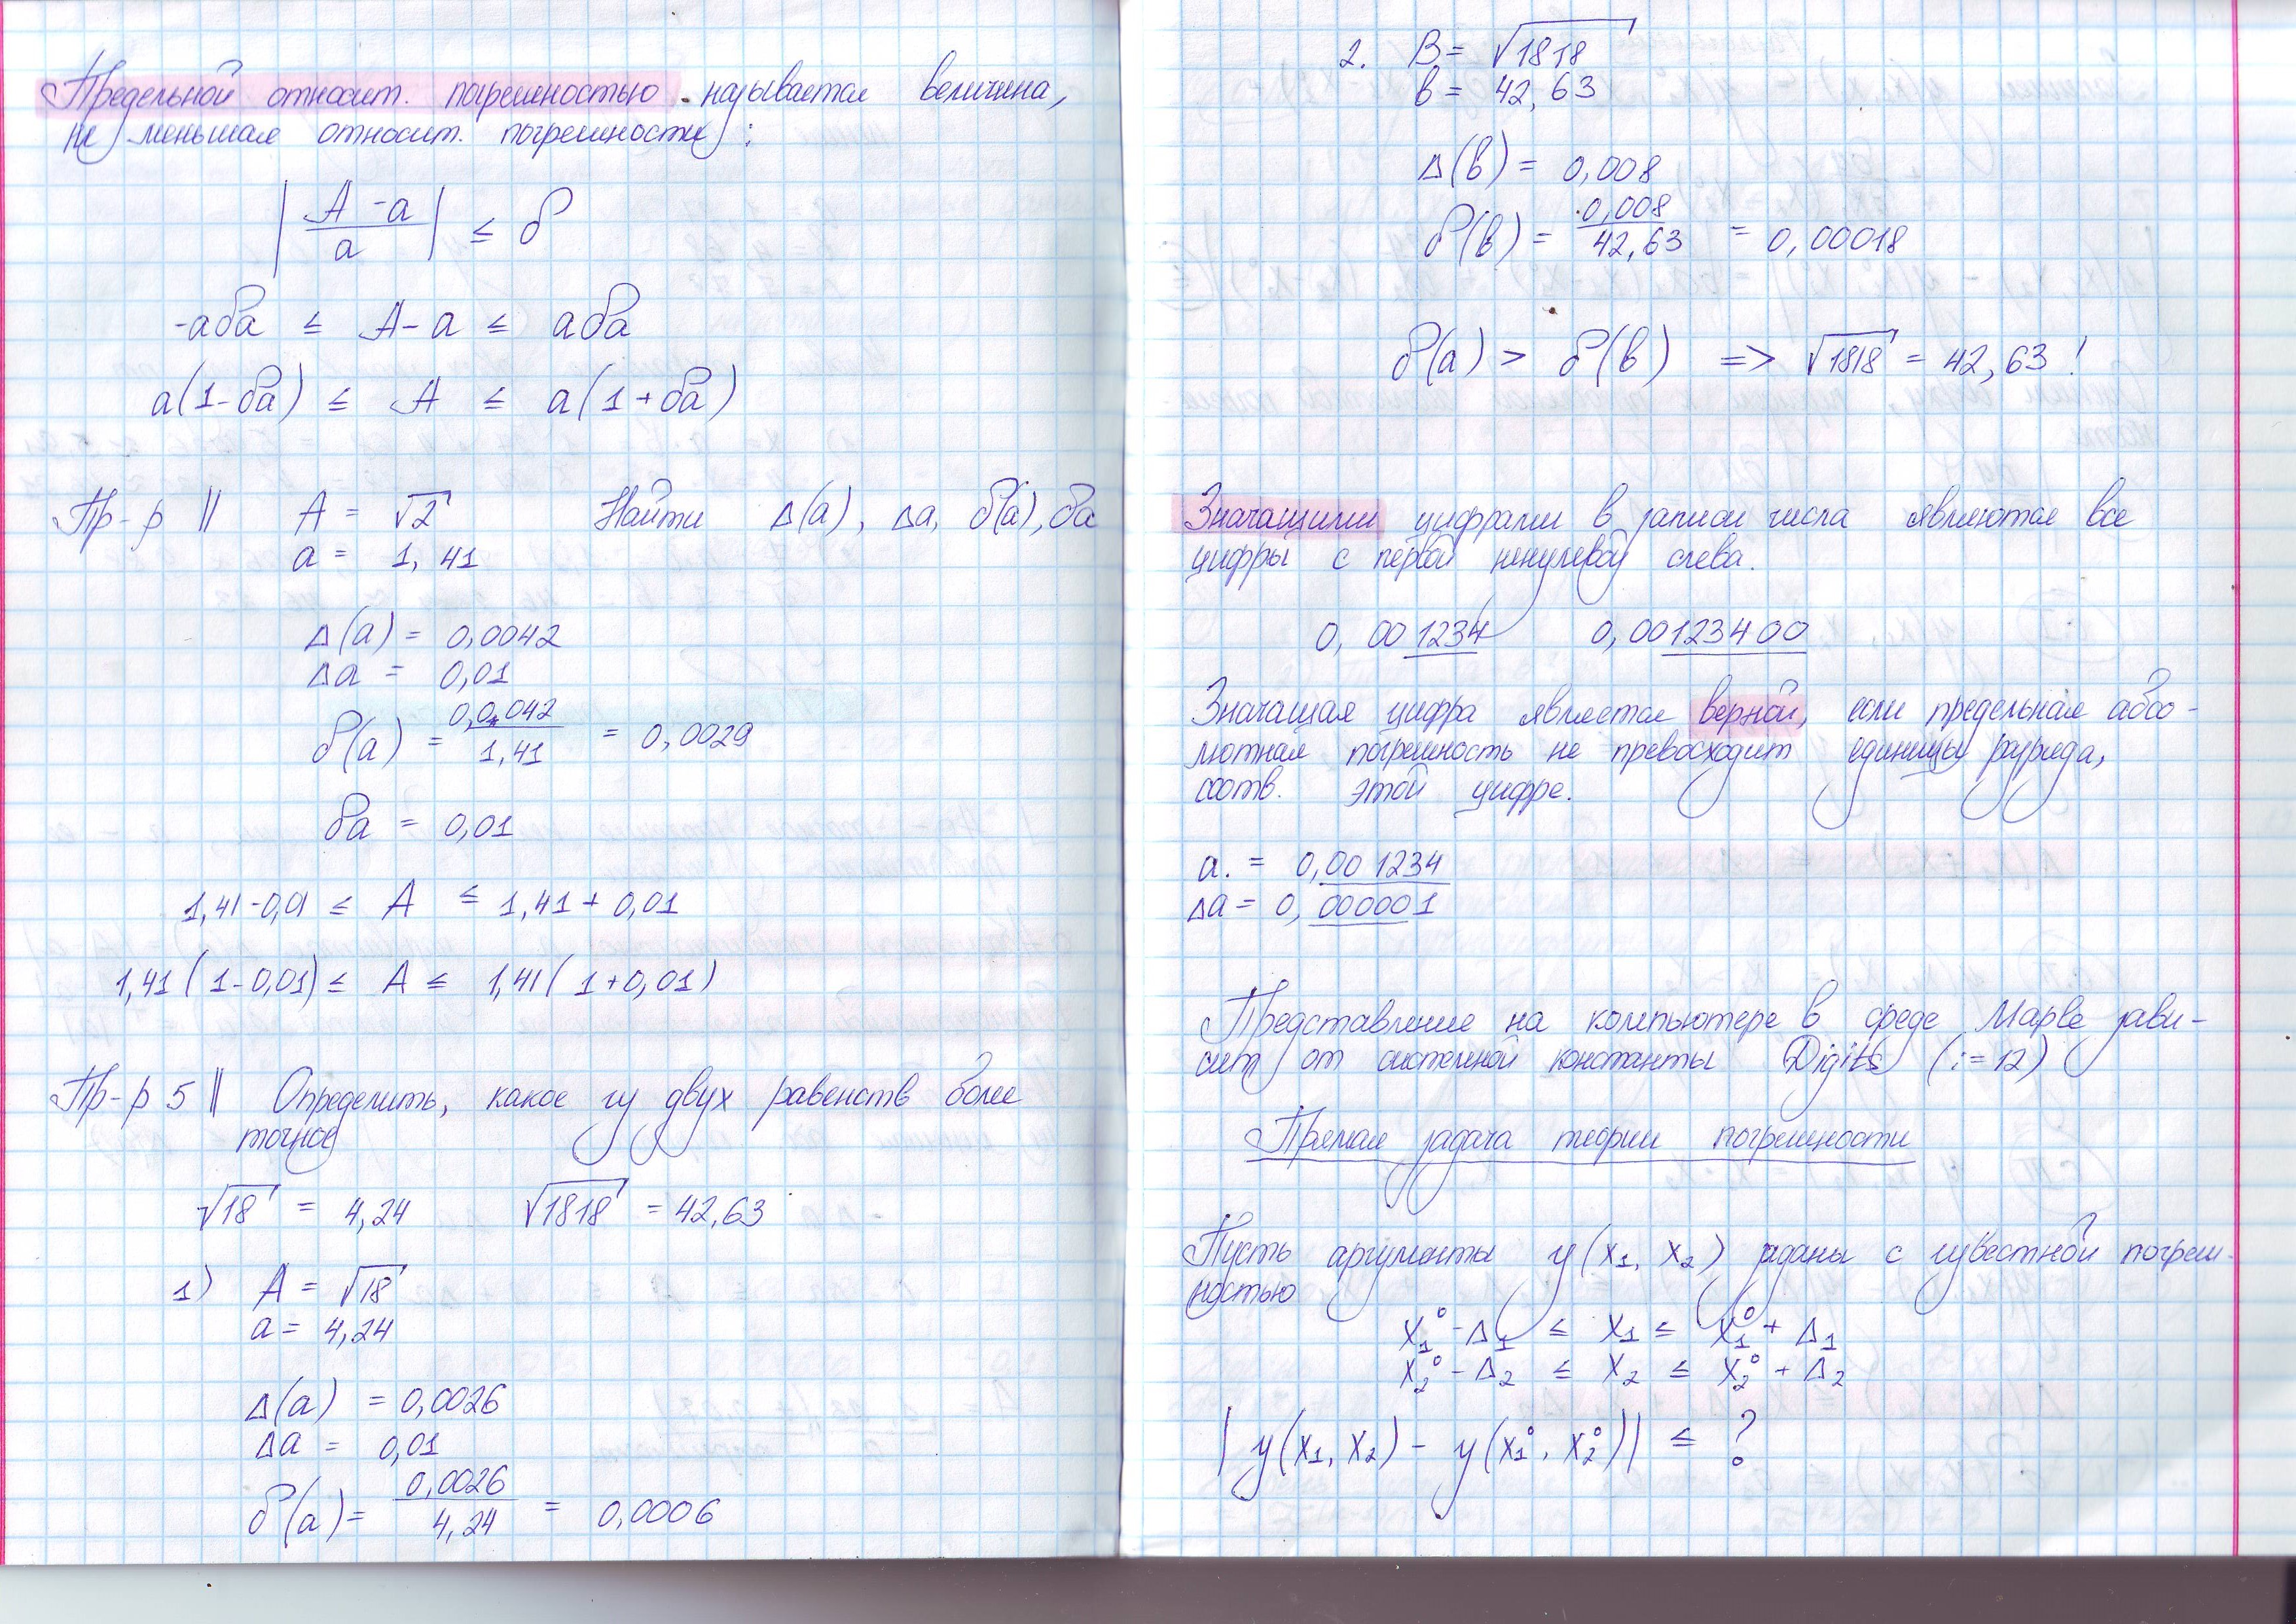 Предельной относит. погрешностью называется величина,
не меньшая относит. погрешности:
|(A - a)/a| ≤ δ
-aδa ≤ A - a ≤ aδa
a(1-δa) ≤ A ≤ a(1+δa)
Пр-р || A = √2 Найти Δ(a), Δa, δ(a), δa
a = 1,41
Δ(a) = 0,0042
Δa = 0,01
δ(a) = 0,0042/1,41 = 0,0029
δa = 0,01
1,41-0,01 ≤ A ≤ 1,41 + 0,01
1,41(1-0,01) ≤ A ≤ 1,41(1+0,01)
Пр-р 5 || Определить, какое из двух равенств более
точное
√18 = 4,24 √1818 = 42,63
1) A = √18
a = 4,24
Δ(a) = 0,0026
Δa = 0,01
δ(a) = 0,0026/4,24 = 0,0006
2. B = √1818
в = 42,63
Δ(в) = 0,008
δ(в) = 0,008/42,63 = 0,00018
δ(a) > δ(в) => √1818 = 42,63!
Значащими цифрами в записи числа являются все
цифры с первой ненулевой слева.
0,001234 0,00123400
Значащая цифра является верной, если предельная абсо-
лютная погрешность не превосходит единицы разряда,
соотв. этой цифре.
a. = 0,001234
Δa = 0,000001
Представление на компьютере в среде Марle зави-
сит от системной константы Digits (:=12)
Прямая задача теории погрешности
Пусть аргументы y(x₁, x₂) заданы с известной погреш-
ностью
x₁⁰ - Δ₁ ≤ x₁ ≤ x₁⁰ + Δ₁
x₂⁰ - Δ₂ ≤ x₂ ≤ x₂⁰ + Δ₂
|y(x₁, x₂) - y(x₁⁰, x₂⁰)| ≤ ?